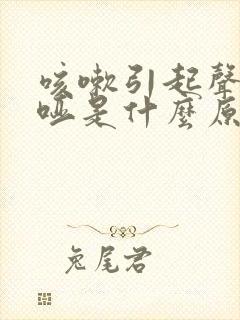 咳嗽引起聲
啞是什麼原
兔尾君